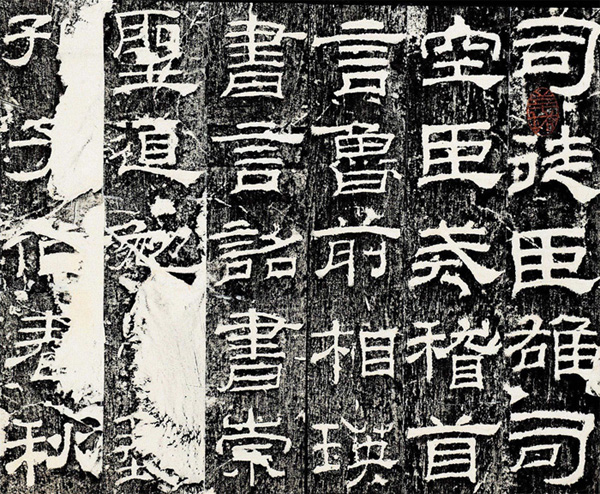 司徒臣雄司
空臣戒稽首
言魯前相瑛
書言詔書崇
聖道勉
孔子作春秋